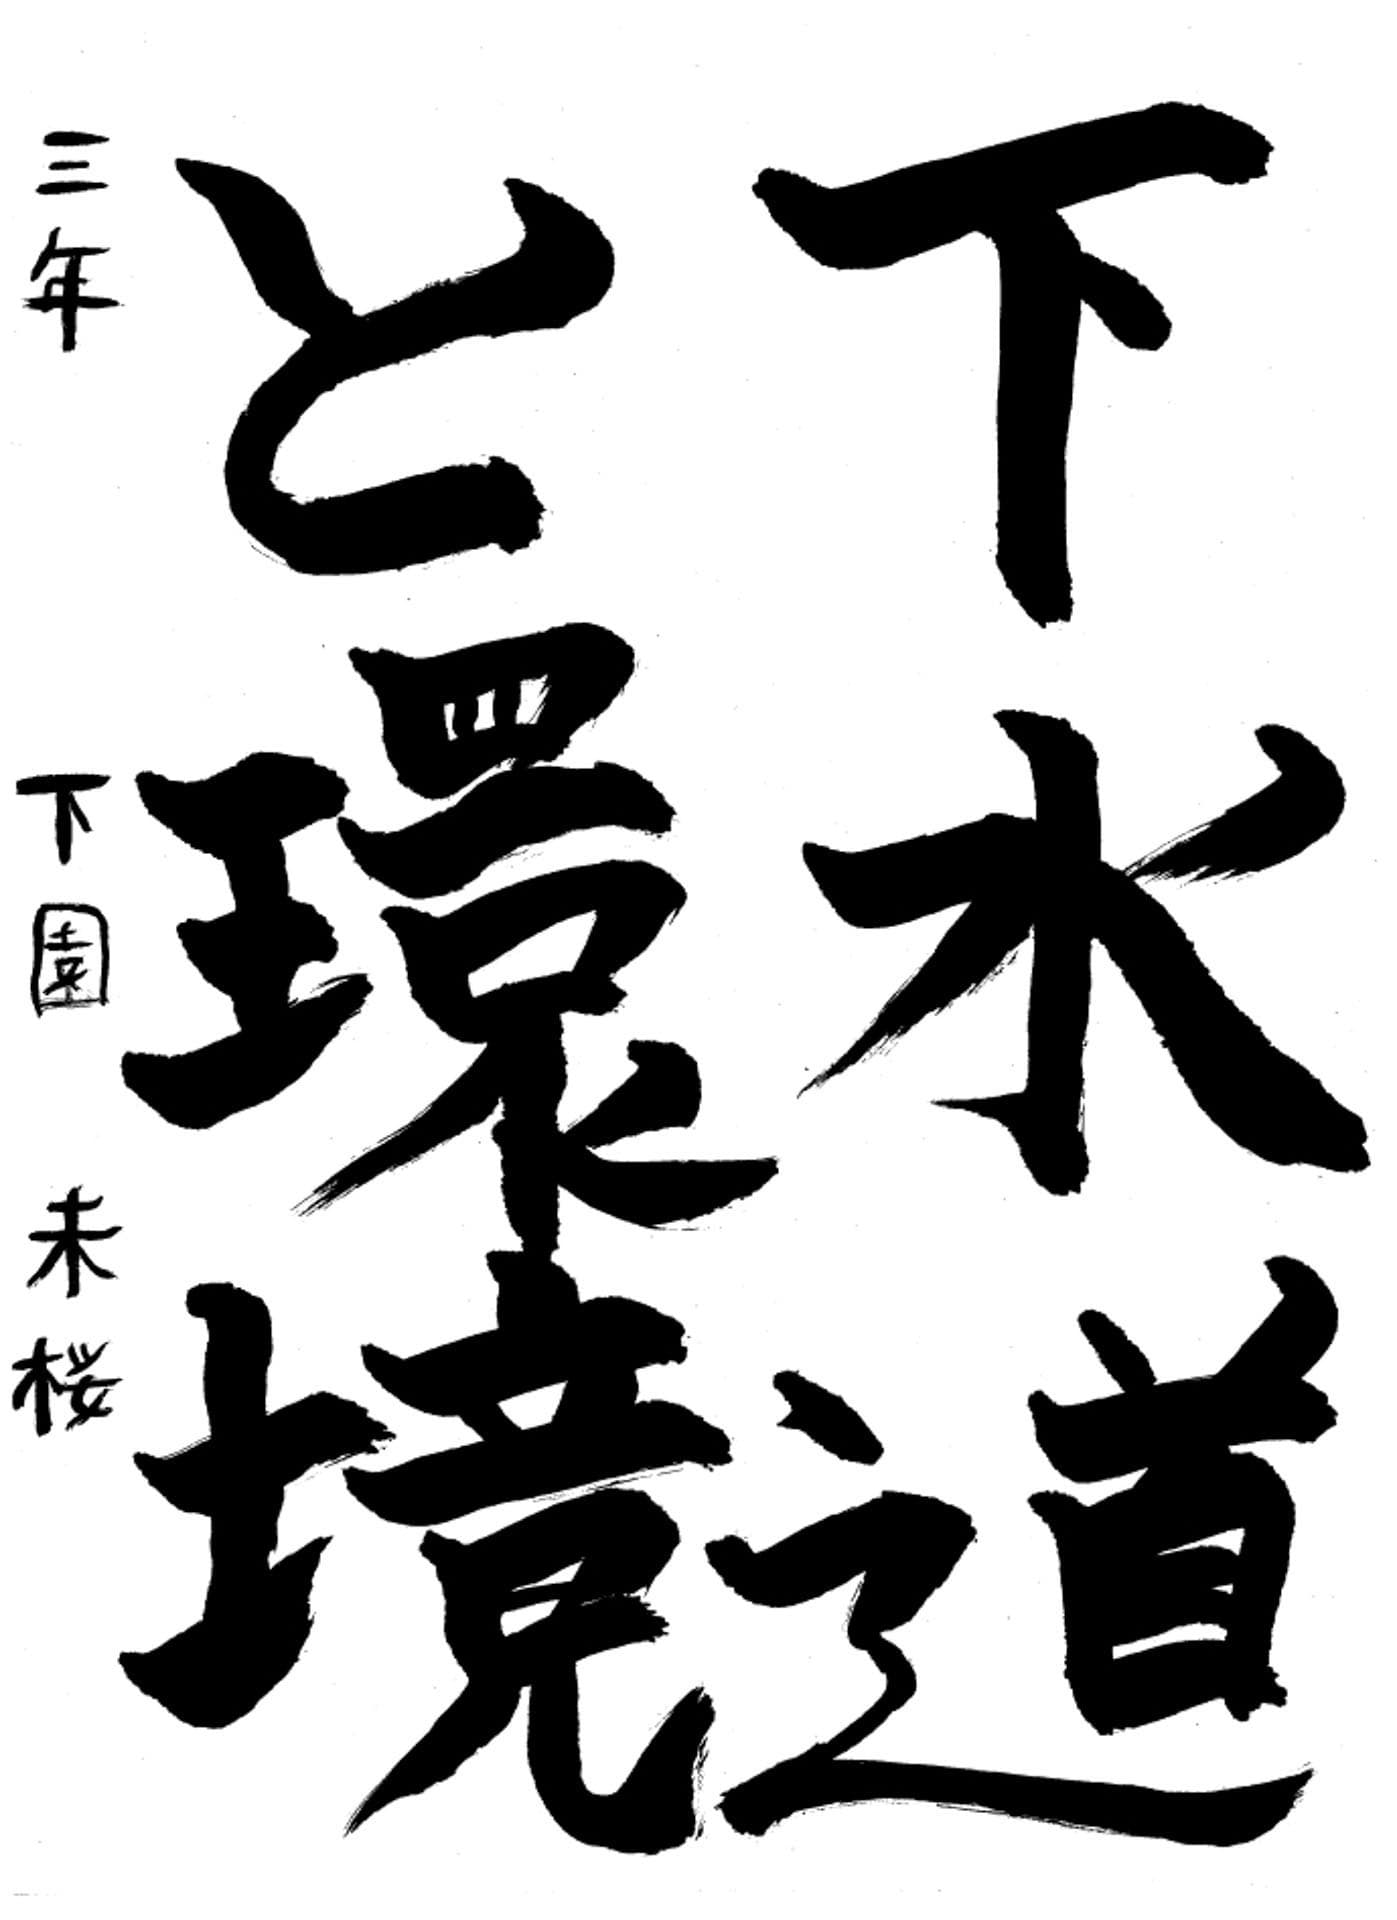 下水道
と環境
三年 下園 未桜